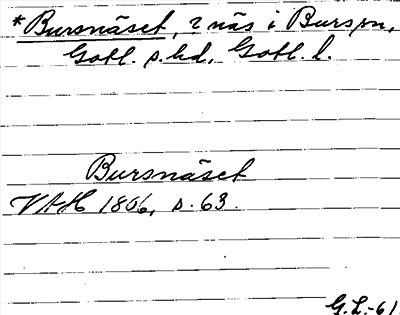 *Bursnäset, ? näs i Burs sn,
Gotl. s. hd, Gotl. l.
Bursnäset
VAH 1806, s. 63.
G.L.-61